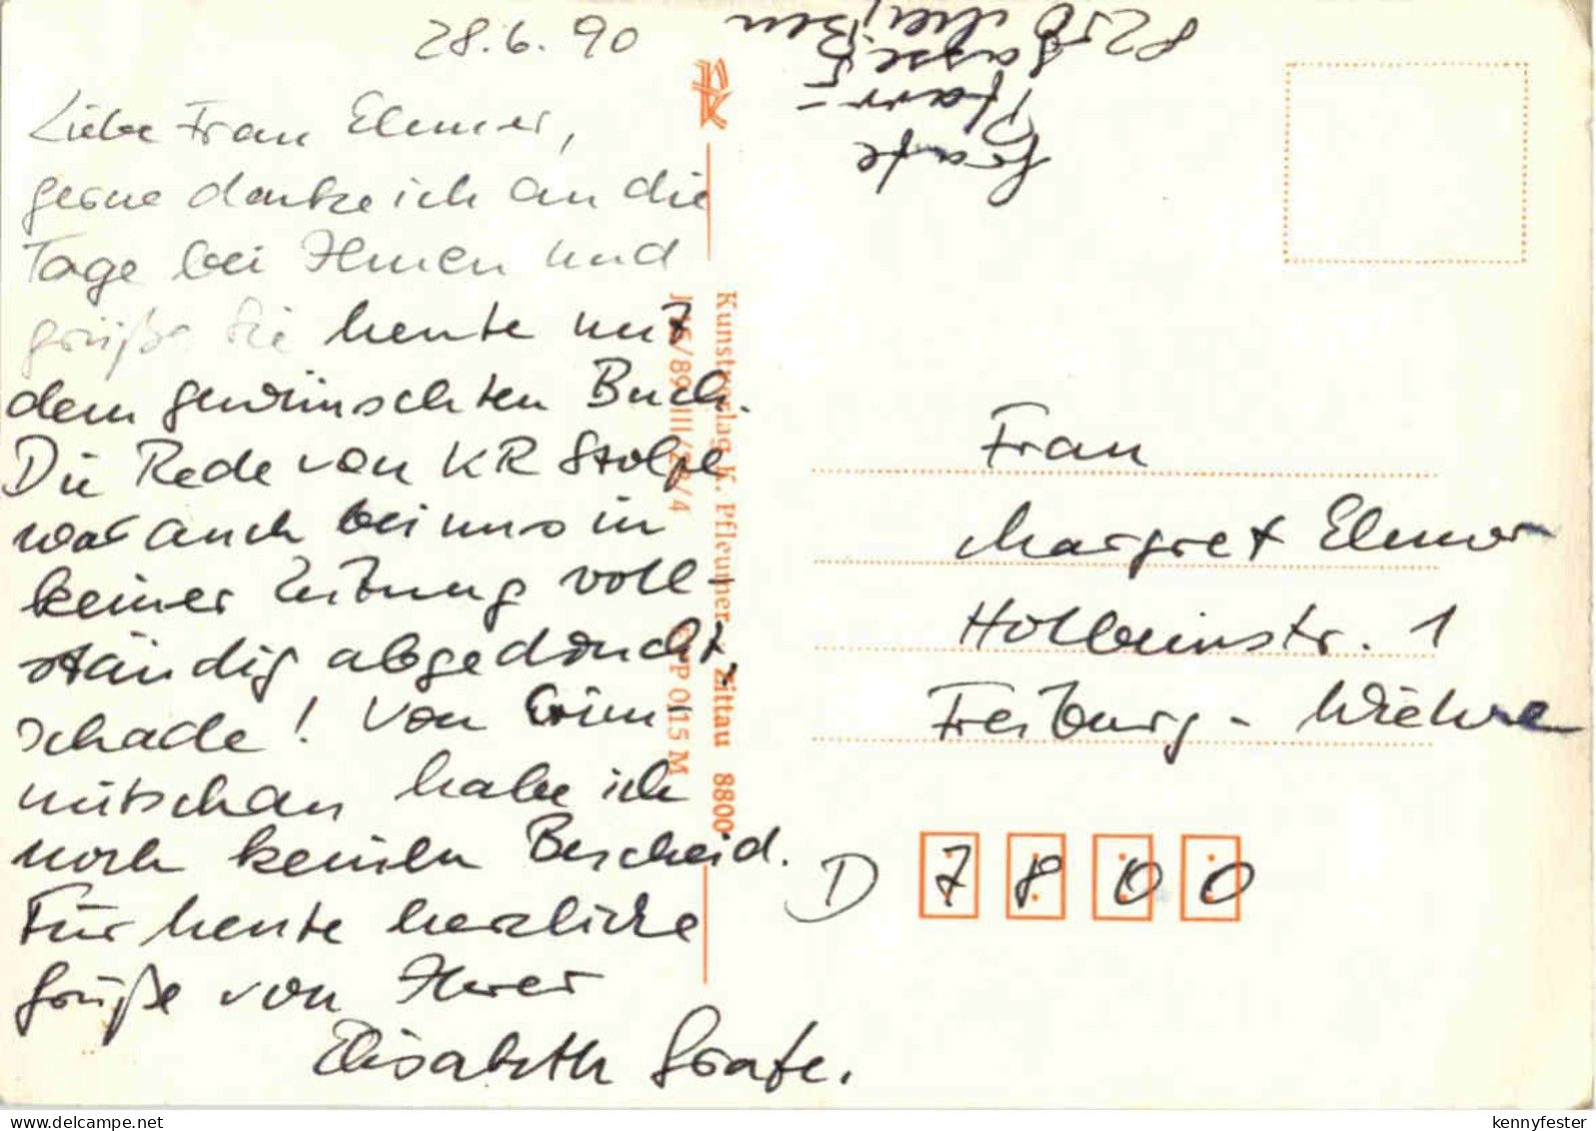 28.6.90
Liebe Frau Elmer,
gerne denke ich an die
Tage bei Ihnen und
grüße Sie heute mit
dem gewünschten Buch.
Die Rede von KR Stolpe
war auch bei uns in
keiner Zeitung voll-
ständig abgedruckt,
schade! Von Crim-
mitschau habe ich
noch keinen Bescheid.
Für heute herzliche
Grüße von Ihrer
Elisabeth Grafe.
Grafe
Pfarr-
gasse 5
8250 Meißen
PK
Kunstverlag K. Pfleumer, Zittau 8800
0,15 M
Frau
Margret Elmer
Holbeinstr. 1
Freiburg - Wiehre
D 7800
kennyfester